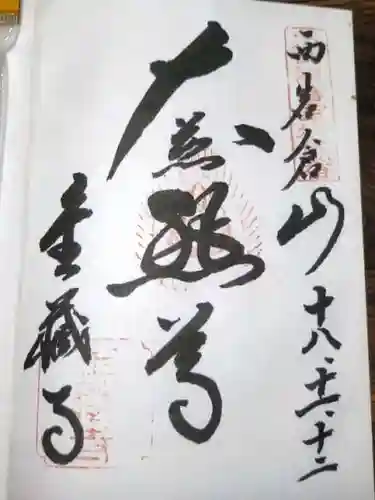 西岩倉山
十八、十一、十二
大慈悲尊
金藏寺